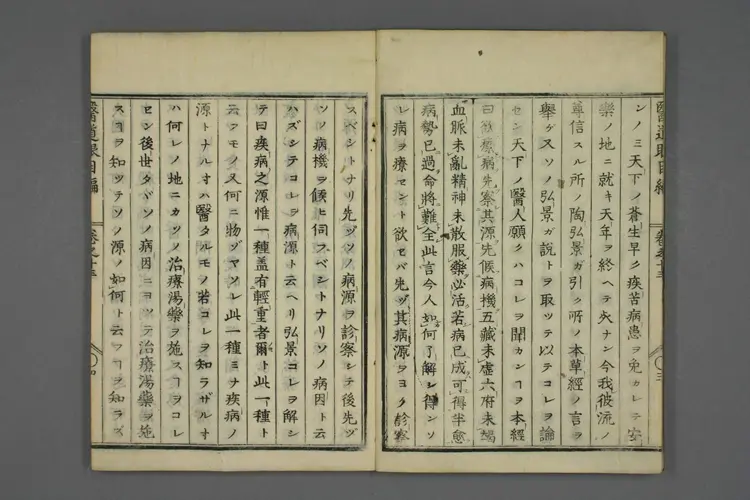 ンノミ天下ノ蒼生早ク疾苦病患ヲ免カレテ安
樂ノ地ニ就キ天年ヲ終ヘテ矢ナン今我彼流ノ
尊信スル所ノ陶弘景ガ引ク所ノ本草經ノ言ヲ
擧ゲスソノ弘景ガ説トヲ取ツテ以テコレヲ論
セン天下ノ醫人願クハコレヲ聞カンヿヲ本經
曰欲療病先察其源先候病機五藏未虚六府未竭
血脈未亂精神未散服藥必活若病已成可得半愈
病勢已過命將難全此言今人如何了解シ得ンソ
レ病ヲ療セント欲セバ先ヅ其病源ヲヨク診察
醫道眼目編
卷之十三
〇三
スベシトナリ先ヅソノ病源ヲ診察シテ後先ヅ
ソノ病機ヲ候ヒ伺フベシトナリソノ病因ト云
ハズシテコレヲ病源ト云ヘリ弘景コレヲ解シ
テ曰疾病之源惟一種盖有輕重者爾ト此一種ト
云フモノハ何ニ物ヅマソレ此一種ミナ疾病ノ
源トナルオハ醫タルモノ若コレヲ知ラザルオ
ハ何レノ地ニカソノ治療湯藥ヲ施スヿヲコレ
セン後世タヾソノ病因ニヨツテ治療湯藥ヲ施
スヿヲ知ツテソノ源ノ如何ト云フヿヲ知ラズ
醫道眼目編
卷之十三
〇四